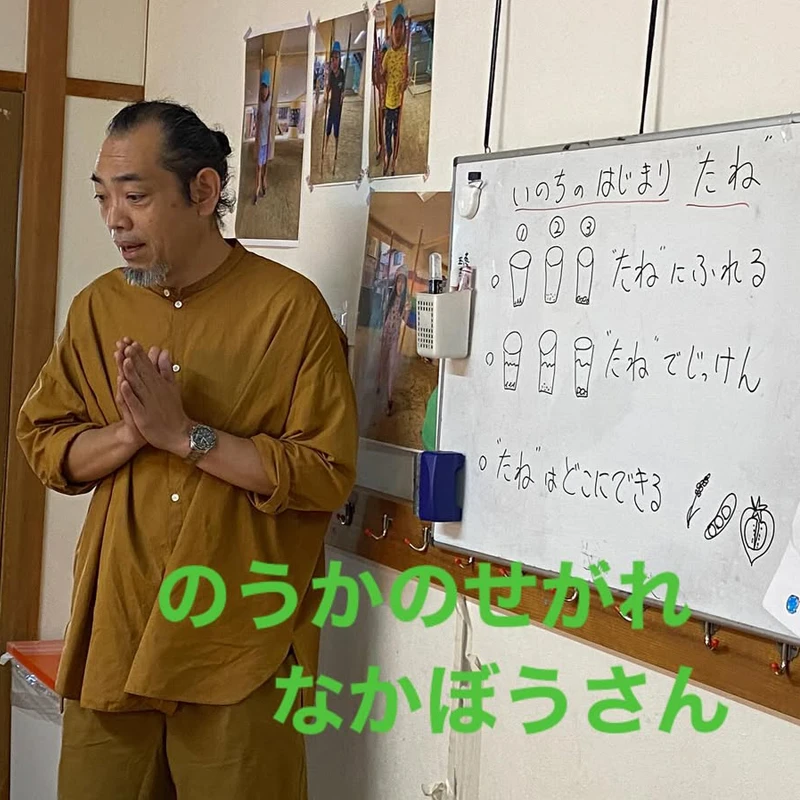 いのちの はじまり "たね"
① ② ③
○ "たね"にふれる
○ "たね"でじっけん
○ "たね"はどこにできる
のうかのせがれ
なかぼうさん